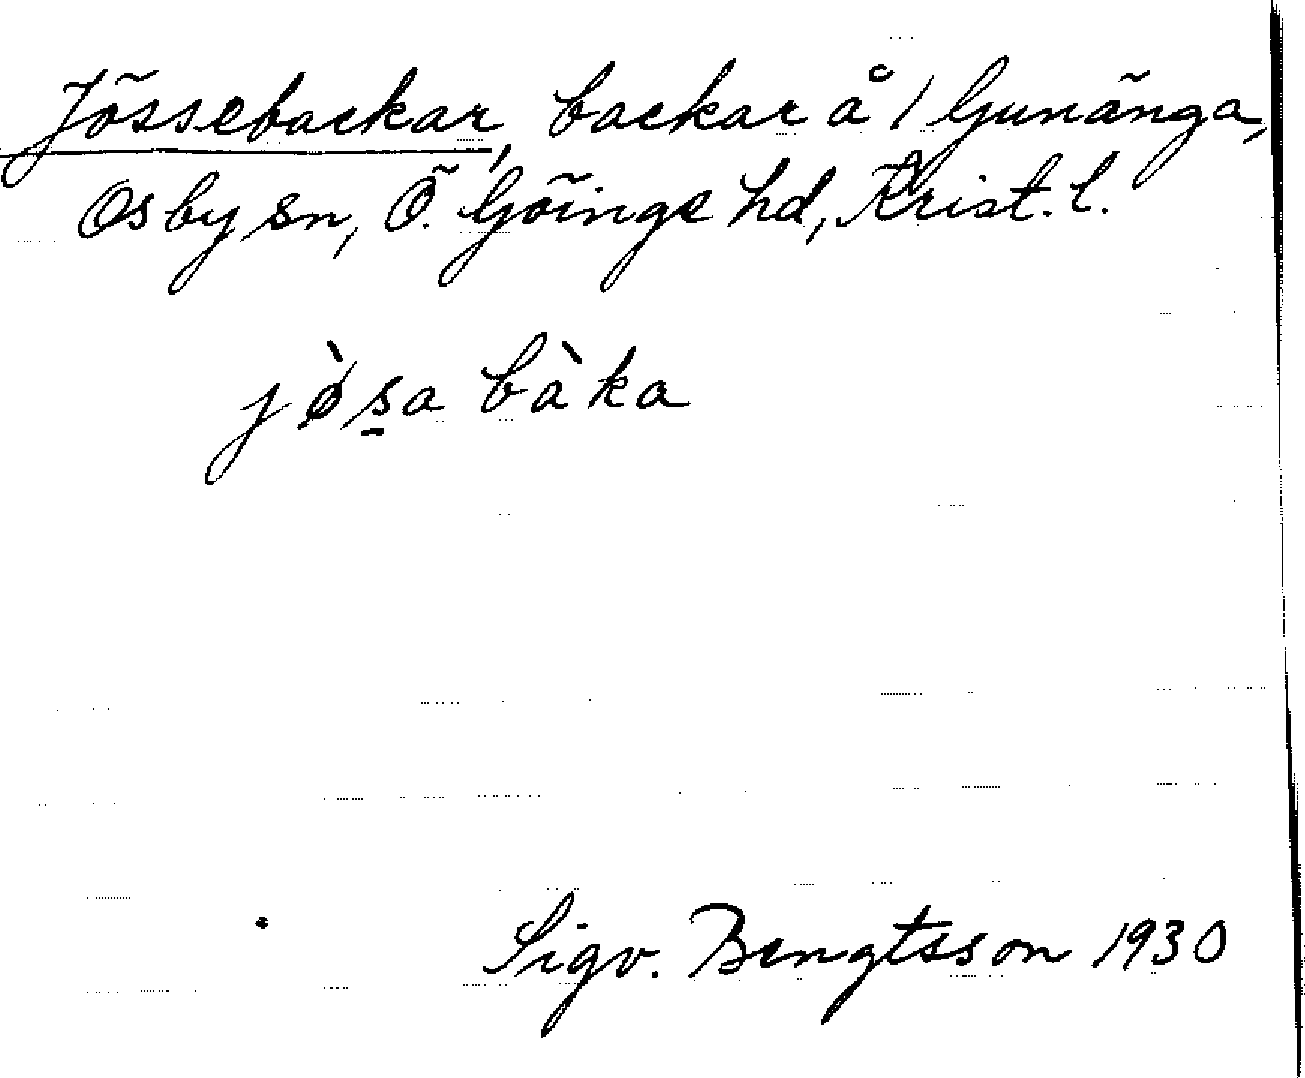 Jössebackar, backar å 1 Gunänga,
Osby sn, Ö. Göinge hd, Krist. l.
jø̀s̱a bàka
Sigv. Bengtsson 1930